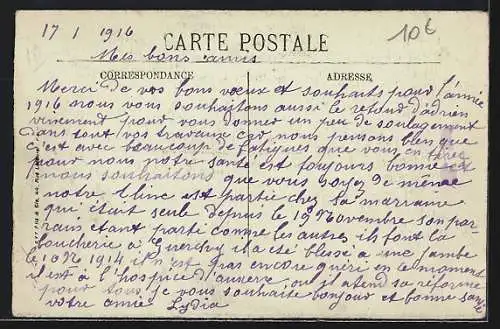 17 1 1916
10€
Mes bons amis
CARTE POSTALE
CORRESPONDANCE
ADRESSE
Merci de vos bons vœux et souhaits pour l'année
1916 nous vous souhaitons aussi le retour d'Adrien
vivement pour vous donner un peu de soulagement
dans tout vos travaux car nous pensons bien que
c'est avec beaucoup de fatigues que vous en
pour nous notre santé est toujours bonne et
nous souhaitons que vous soyez de même
notre est partie chez sa marraine
qui était seule depuis le 19 Novembre son par-
rain étant parti comme les autres ils font la
boucherie à il a été blessé a une jambe
le 10 1914 il n'est pas encore guéri en le moment
il est à l'hospice d'auxerre ou il atend sa réforme
pour tous je vous souhaite bonjour et bonne santé
votre amie Lydia